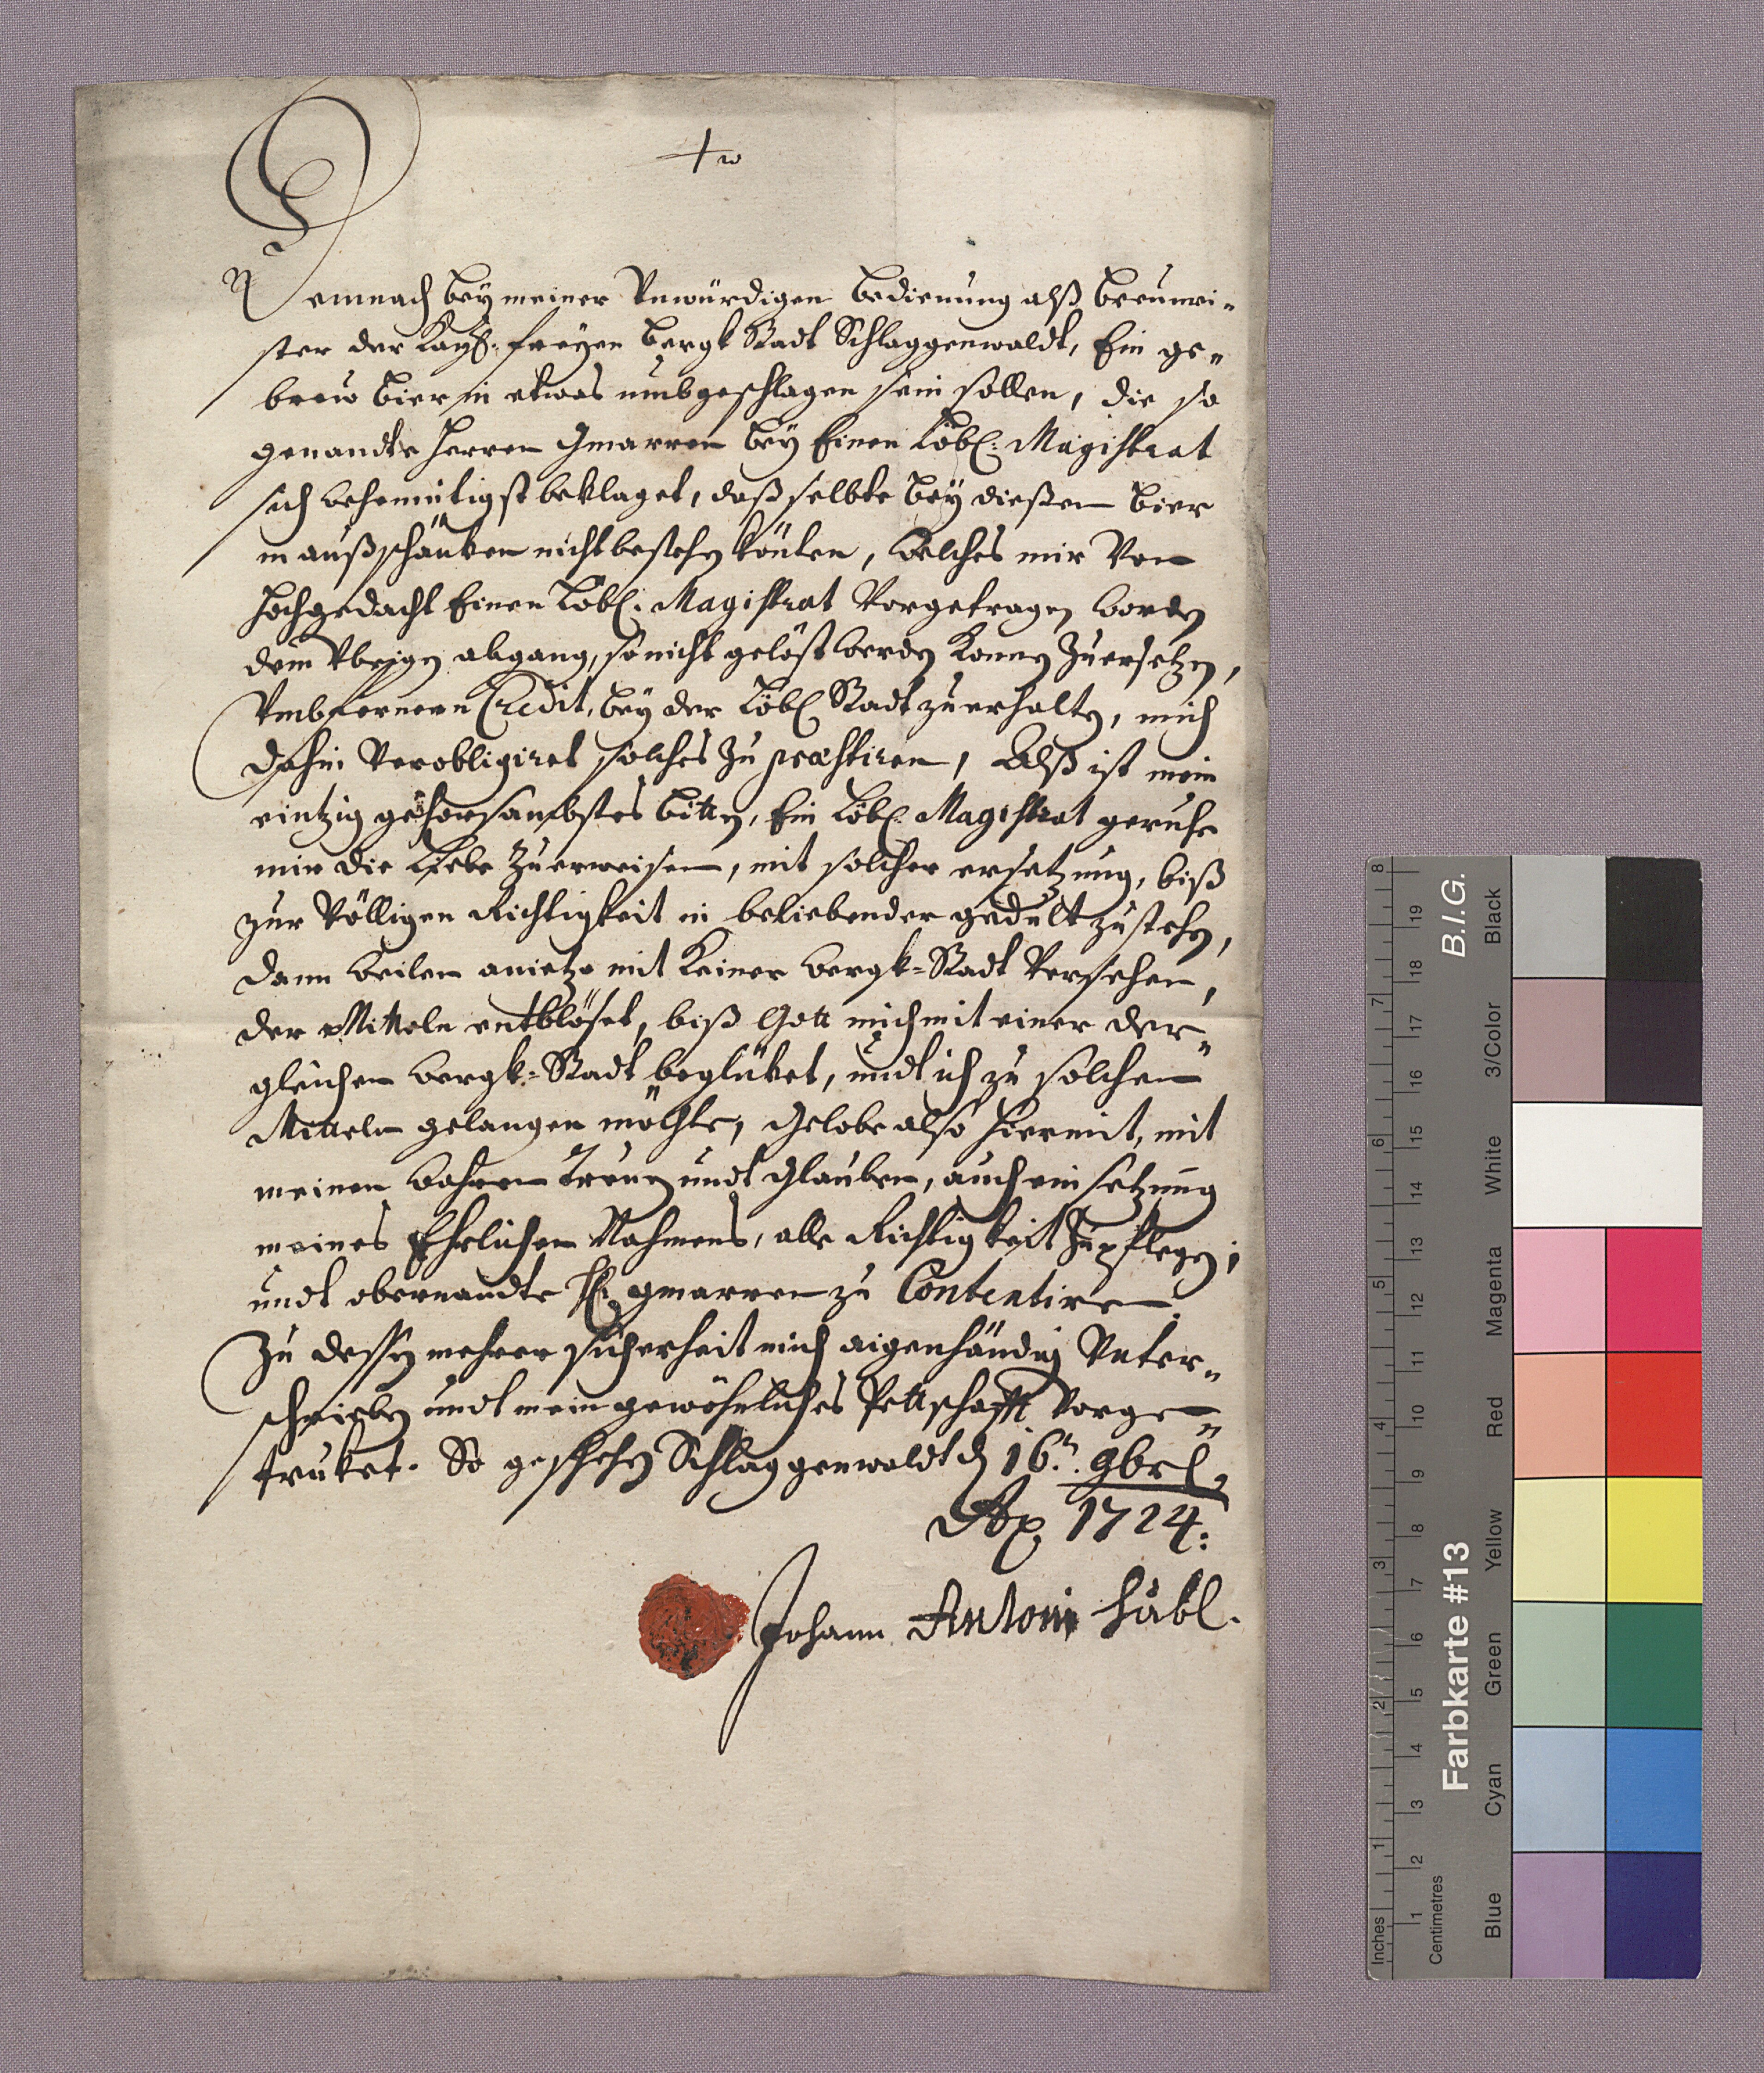 Demnach bey meiner Vnwürdigen bedienung alß breumei-
ster der Kayß: freyen bergk Stadt Schlaggenwaldt, Ein ge-
breu bier in etwas umbgeschlagen sein sollen, die so
genandte Herren bey Einen Löbl: Magistrat
sich beklaget, daß selbte bey dießem bier
in außschänken nicht bestehen könten, welches mir Von
Hochgedacht Einen Löbl: Magistrat Vorgetragen worden
dem Vbrigen abgang, so nicht gelöst werden Können Zu ersetzen,
Vmb fernern Credit, bey der Löbl Stadt zu erhalten, mich
dahin Verobligiret solches Zu præstiren, Alß ist mein
eintzig gehorsambstes bitten, Ein Löbl Magistrat geruhe
mir die Liebe Zu erweisen, mit solcher ersetzung, biß
zur Völligen Richtigkeit in beliebender gedult zu stehen,
dann weilen anietzo mit Keiner bergk-Stadt Versehen,
der Mitteln entblöset, biß Gott mich mit einer der-
gleichen bergk-Stadt beglüket, undt ich zu solchen
Mitteln gelangen möchte, Gelobe also hiermit, mit
meinen wahren Treuen undt Glauben, auch ein setzung
meines Ehrlichen Nahmens, alle Richtigkeit Zu pflegen,
undt obernandte H: zu Contentiren.
Zu dessen mehrer sicherheit mich aigenhändig Vnter-
schrieben undt mein gewöhnliches Pettschafft Vorge-
truket. So geschehen Schlaggenwaldt d 16.t 9brl,
Ao 1724:
Johann Antoni Häbl.